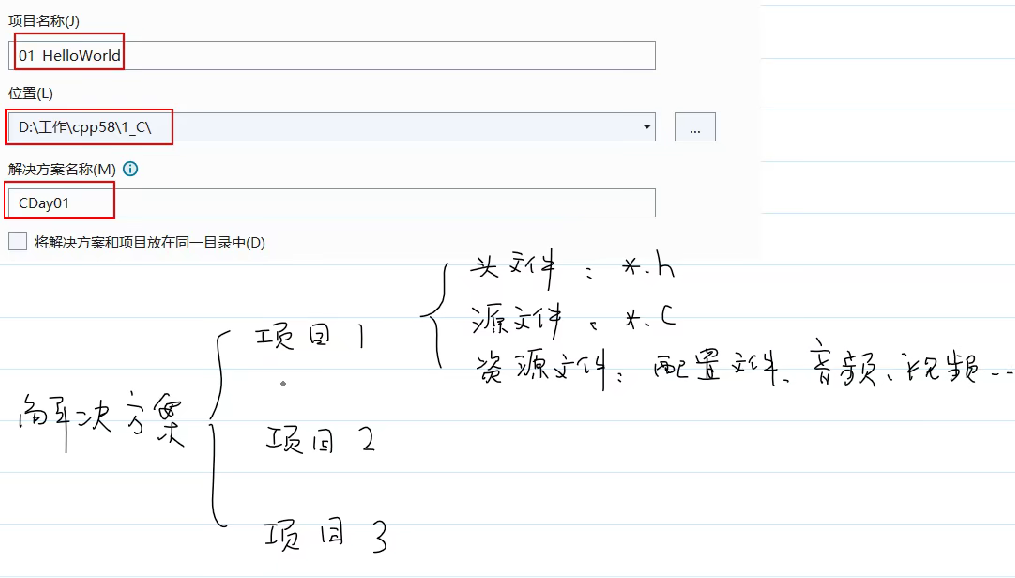 项目名称(J)
01_HelloWorld
位置(L)
D:\工作\cpp58\1_C\
...
解决方案名称(M)
CDay01
将解决方案和项目放在同一目录中(D)
头文件 : *.h
源文件 : *.C
项目 1
资源文件: 配置文件、音频、视频...
解决方案
项目 2
项目 3